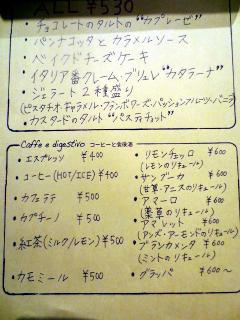 ALL ¥530
・チョコレートのタルトの"カプレーゼ"
・パンナコッタとキャラメルソース
・ベイクドチーズケーキ
・イタリア番クレーム・ブリュレ"カタラーナ"
・ジェラート2種盛り
(ピスタチオ・キャラメル・フランボワーズ・パッションフルーツ・バニラ)
・カスタードのタルト"パスティチョット"
Caffè e digestivo コーヒーと食後酒
・エスプレッソ ¥400
・コーヒー(HOT/ICE) ¥400
・カフェラテ ¥500
・カプチーノ ¥500
・紅茶(ミルク/レモン) ¥500
・カモミール ¥500
・リモンチェッロ ¥600
(レモンのリキュール)
・サンブーカ ¥600
(甘草・アニスのリキュール)
・アマーロ ¥600
(薬草のリキュール)
・アマレット ¥600
(アンズ・アーモンドのリキュール)
・ブランカメンタ ¥600
(ミントのリキュール)
・グラッパ ¥600〜